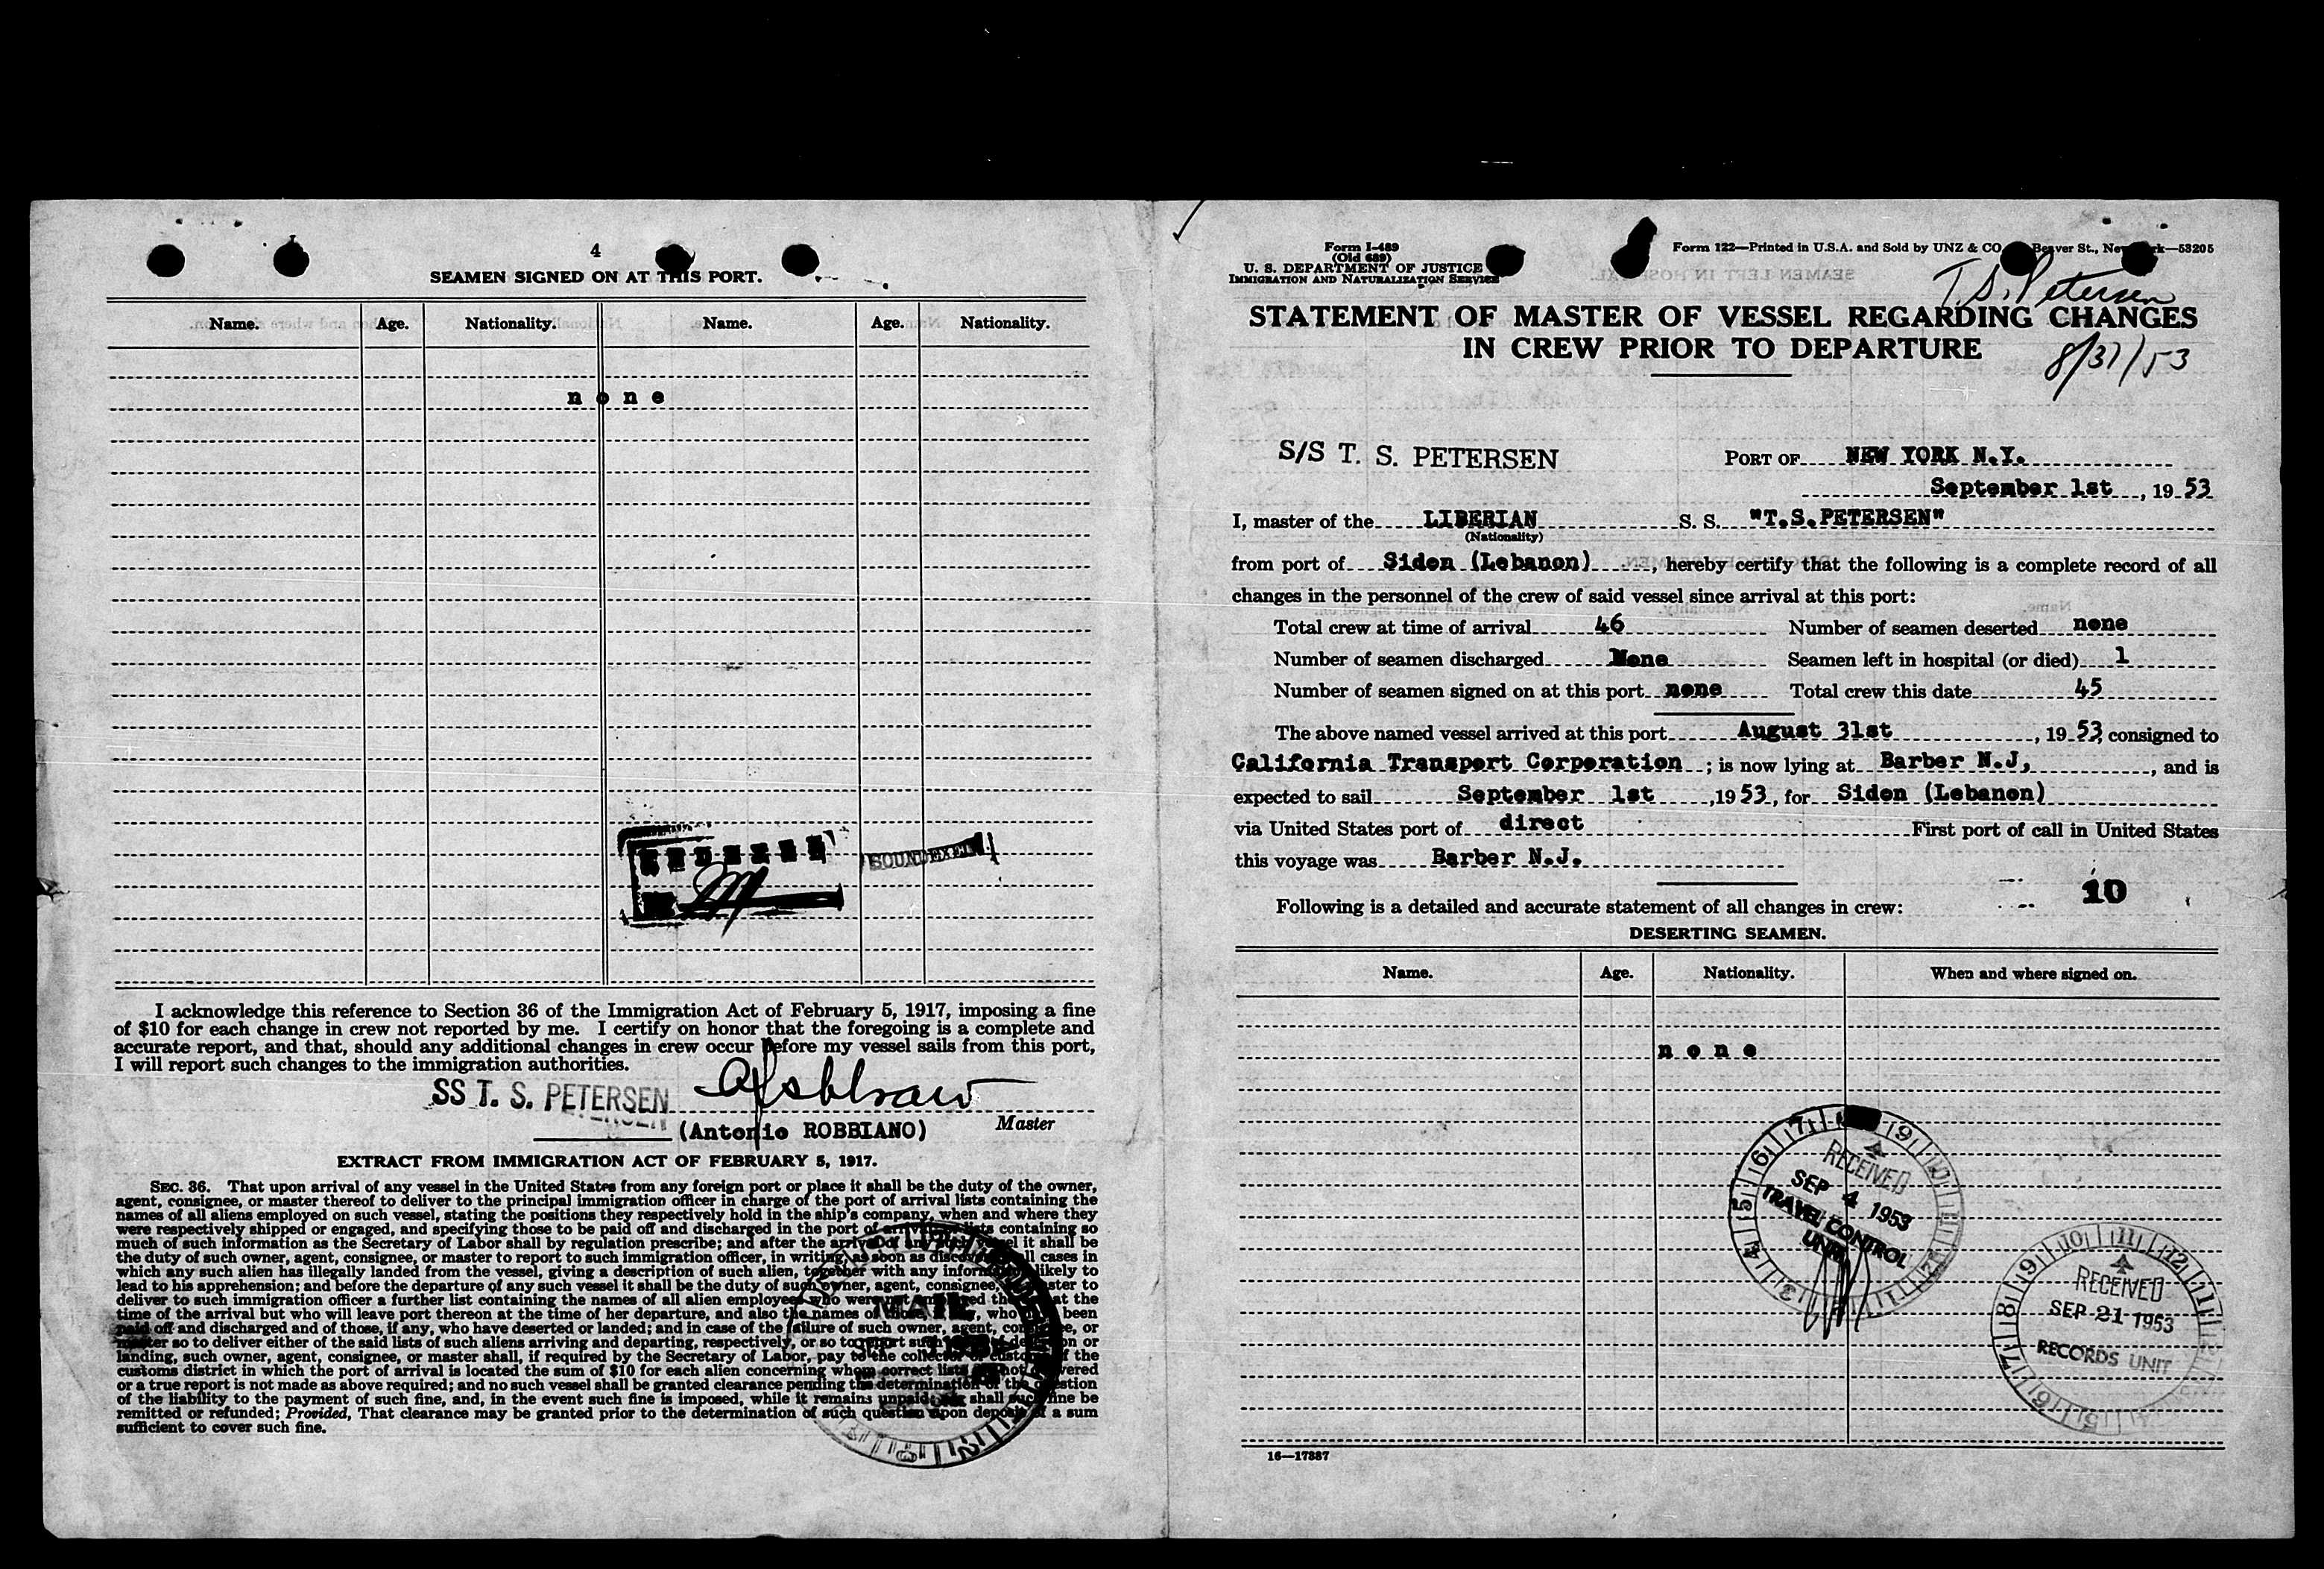 4
SEAMEN SIGNED ON AT THIS PORT.
Name. Age. Nationality. Name. Age. Nationality.
none
SOUNDEXED
I acknowledge this reference to Section 36 of the Immigration Act of February 5, 1917, imposing a fine
of $10 for each change in crew not reported by me. I certify on honor that the foregoing is a complete and
accurate report, and that, should any additional changes in crew occur before my vessel sails from this port,
I will report such changes to the immigration authorities.
SS T. S. PETERSEN
(Antonio ROBBIANO) Master
EXTRACT FROM IMMIGRATION ACT OF FEBRUARY 5, 1917.
SEC. 36. That upon arrival of any vessel in the United States from any foreign port or place it shall be the duty of the owner,
agent, consignee, or master thereof to deliver to the principal immigration officer in charge of the port of arrival lists containing the
names of all aliens employed on such vessel, stating the positions they respectively hold in the ship's company, when and where they
were respectively shipped or engaged, and specifying those to be paid off and discharged in the port of arrival or lists containing so
much of such information as the Secretary of Labor shall by regulation prescribe; and after the arrival of any such vessel it shall be
the duty of such owner, agent, consignee, or master to report to such immigration officer, in writing, as soon as discovered, all cases in
which any such alien has illegally landed from the vessel, giving a description of such alien, together with any information likely to
lead to his apprehension; and before the departure of any such vessel it shall be the duty of such owner, agent, consignee, or master to
deliver to such immigration officer a further list containing the names of all alien employees who were not employed thereon at the
time of the arrival but who will leave port thereon at the time of her departure, and also the names of those, if any, who have been
paid off and discharged and of those, if any, who have deserted or landed; and in case of the failure of such owner, agent, consignee, or
master so to deliver either of the said lists of such aliens arriving and departing, respectively, or so to report such cases of desertion or
landing, such owner, agent, consignee, or master shall, if required by the Secretary of Labor, pay to the collector of customs of the
customs district in which the port of arrival is located the sum of $10 for each alien concerning whom correct lists are not delivered
or a true report is not made as above required; and no such vessel shall be granted clearance pending the determination of the question
of the liability to the payment of such fine, and, in the event such fine is imposed, while it remains unpaid; nor shall such fine be
remitted or refunded; Provided, That clearance may be granted prior to the determination of such question upon deposit of a sum
sufficient to cover such fine.
MAIL
Form I-489
(Old 689)
U. S. DEPARTMENT OF JUSTICE
IMMIGRATION AND NATURALIZATION SERVICE
Form 122—Printed in U.S.A. and Sold by UNZ & CO Beaver St., New York—53205
T. S. Petersen
STATEMENT OF MASTER OF VESSEL REGARDING CHANGES
IN CREW PRIOR TO DEPARTURE
8/31/53
S/S T. S. PETERSEN PORT OF NEW YORK N.Y.
September 1st, 1953
I, master of the LIBERIAN S. S. "T.S.PETERSEN"
(Nationality)
from port of Sidon (Lebanon), hereby certify that the following is a complete record of all
changes in the personnel of the crew of said vessel since arrival at this port:
Total crew at time of arrival 46 Number of seamen deserted none
Number of seamen discharged None Seamen left in hospital (or died) 1
Number of seamen signed on at this port none Total crew this date 45
The above named vessel arrived at this port August 31st, 1953, consigned to
California Transport Corporation; is now lying at Barber N.J., and is
expected to sail September 1st, 1953, for Sidon (Lebanon)
via United States port of direct First port of call in United States
this voyage was Barber N.J.
10
Following is a detailed and accurate statement of all changes in crew:
DESERTING SEAMEN.
Name. Age. Nationality. When and where signed on.
none
RECEIVED
SEP 4 1953
TRAVEL CONTROL
UNIT
RECEIVED
SEP 21 1953
RECORDS UNIT
16—17887